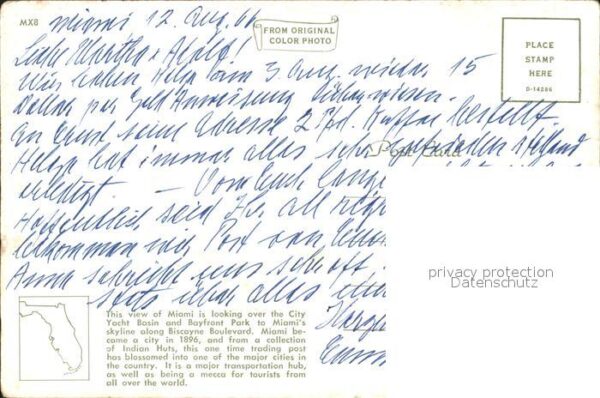 MX8
Miami 12. Aug. 66
FROM ORIGINAL
COLOR PHOTO
PLACE
STAMP
HERE
D-14286
Liebe Martha & Adolf!
Wir haben Helga am 3. Aug. wieder 15
Dollar per Geld Anweisung überwiesen.
An Ernst seine Adresse 2 Pfd. Kaffee bestellt.
Post Card
Helga hat immer alles sehr zufrieden stellend
erledigt. — Von Euch lange
Hoffentlich seid Ihr all right
bekommen wir Post von
Anna schreibt uns sehr oft.
stets über alles
privacy protection
Datenschutz
This view of Miami is looking over the City
Yacht Basin and Bayfront Park to Miami's
skyline along Biscayne Boulevard. Miami be-
came a city in 1896, and from a collection
of Indian Huts, this one time trading post
has blossomed into one of the major cities in
the country. It is a major transportation hub,
as well as being a mecca for tourists from
all over the world.